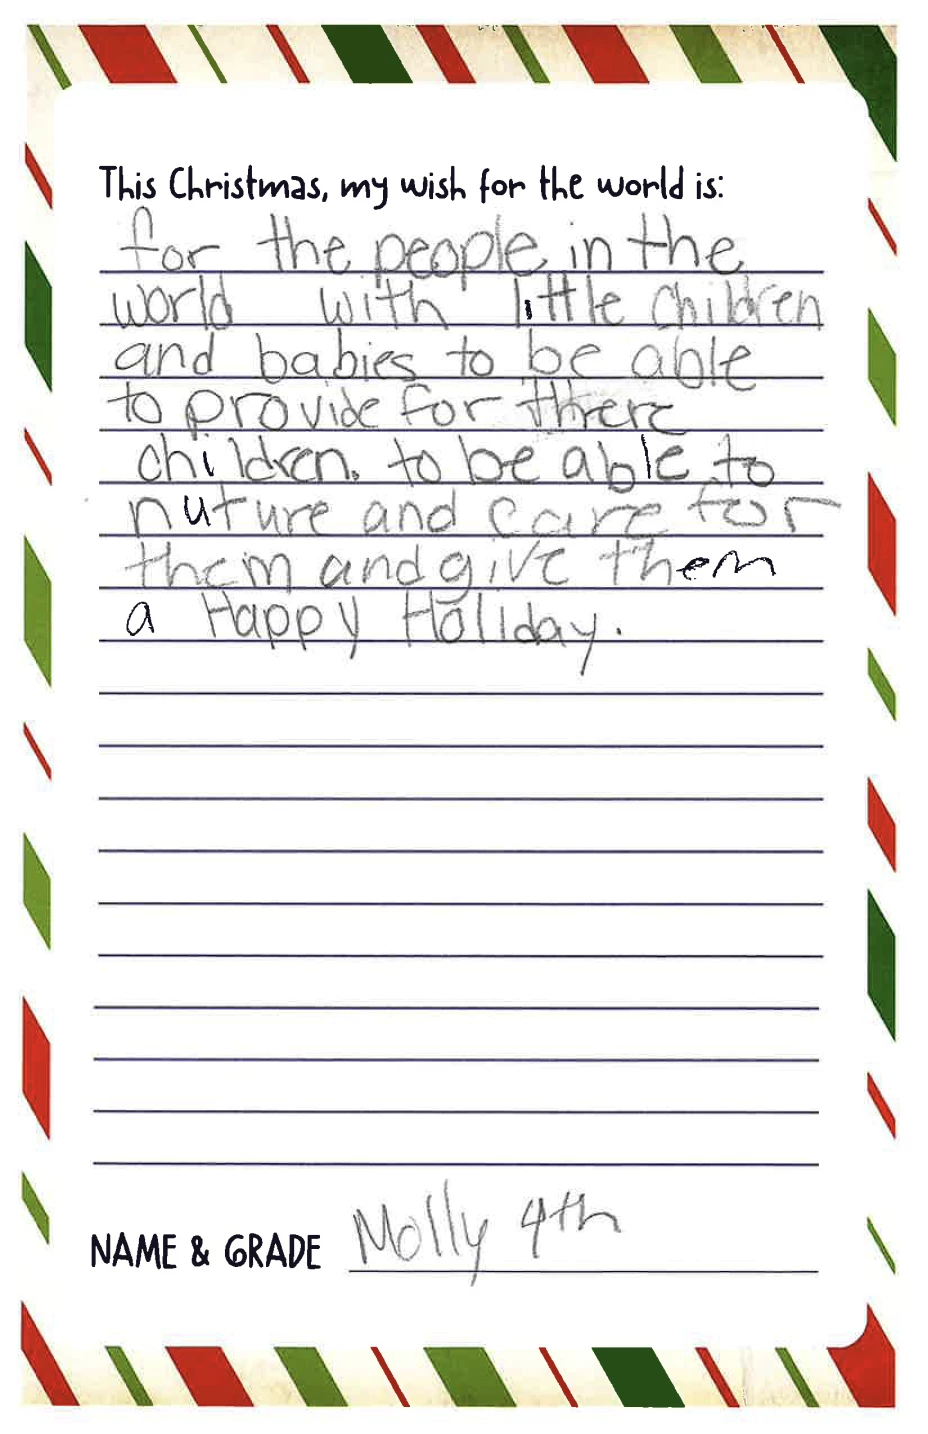 This Christmas, my wish for the world is:
for the people in the
world with little children
and babies to be able
to provide for there
children. to be able to
nuture and care for
them and give them
a Happy Holiday.
NAME & GRADE Molly 4th